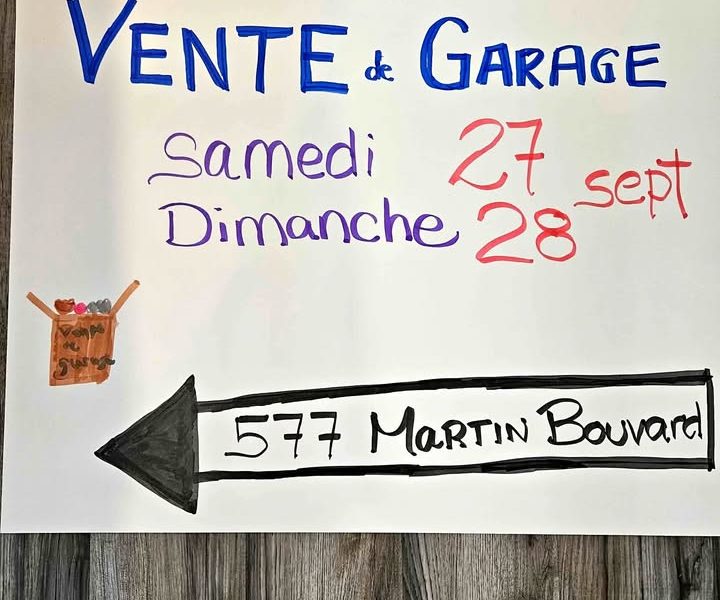 VENTE de GARAGE
Samedi 27 sept
Dimanche 28
Vente
de
garage
577 MARTIN Bouvard